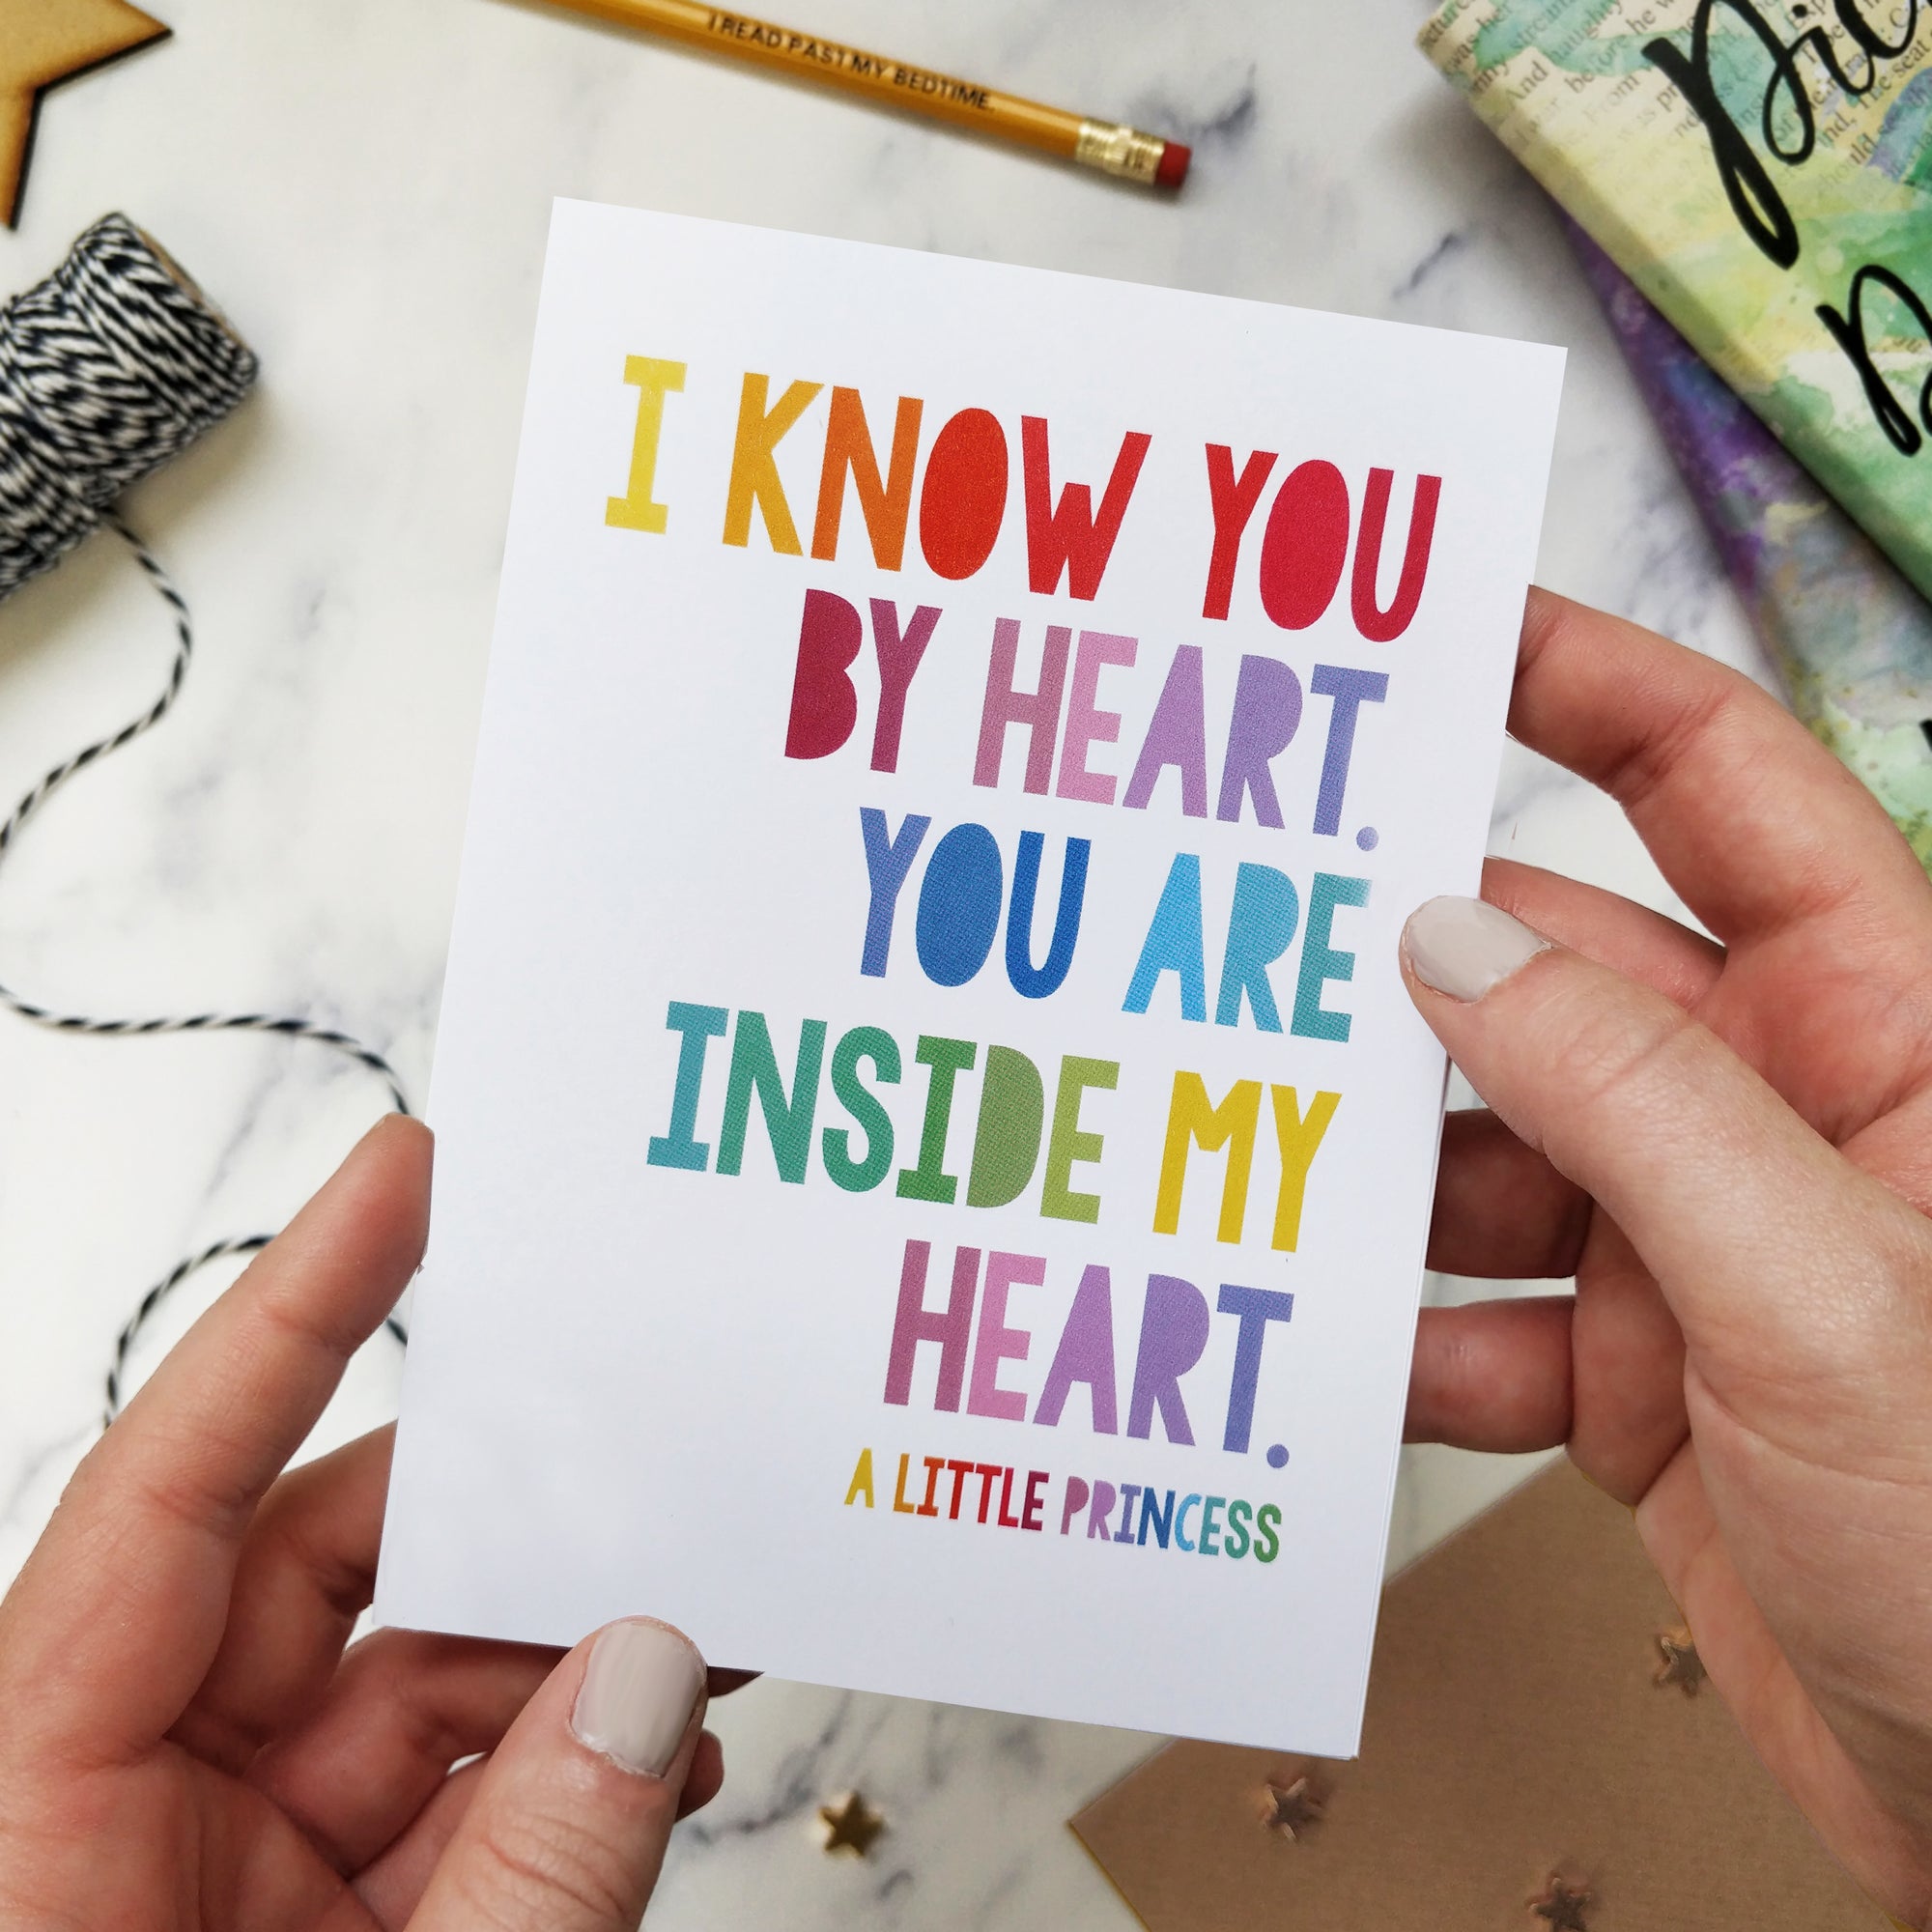 I READ PAST MY BEDTIME.
I KNOW YOU
BY HEART.
YOU ARE
INSIDE MY
HEART.
A LITTLE PRINCESS